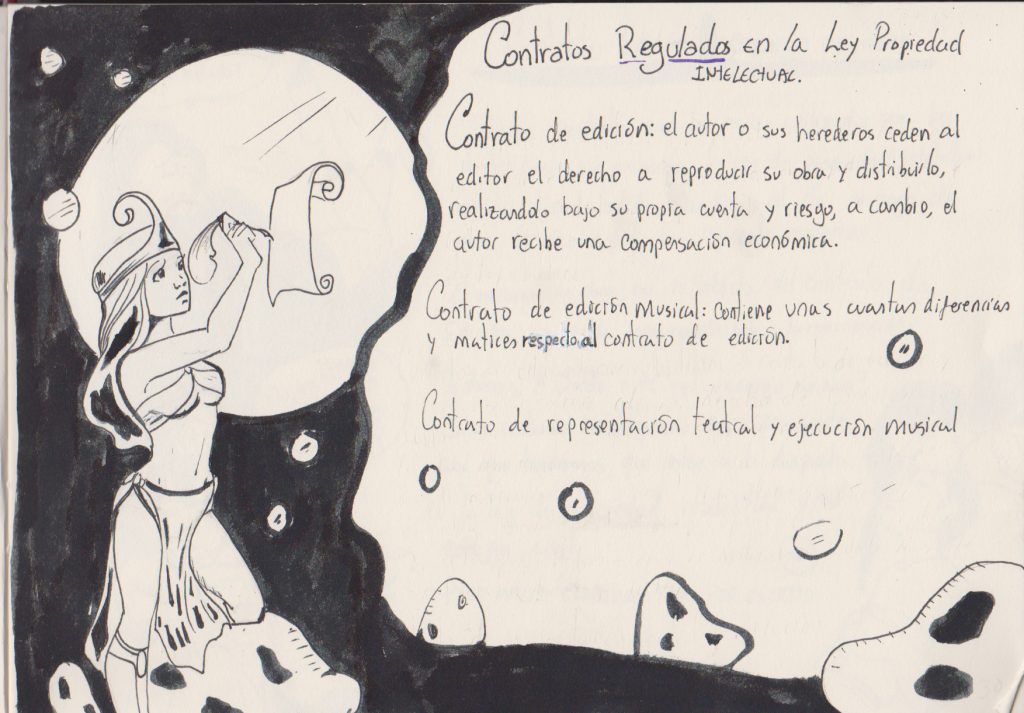 Contratos Regulados en la Ley Propiedad
INTELECTUAL.
Contrato de edición: el autor o sus herederos ceden al
editor el derecho a reproducir su obra y distribuirlo,
realizandolo bajo su propia cuenta y riesgo, a cambio, el
autor recibe una compensación económica.
Contrato de edición Musical: Contiene unas cuantas diferencias
y matices respecto al contrato de edición.
Contrato de representación teatral y ejecución musical